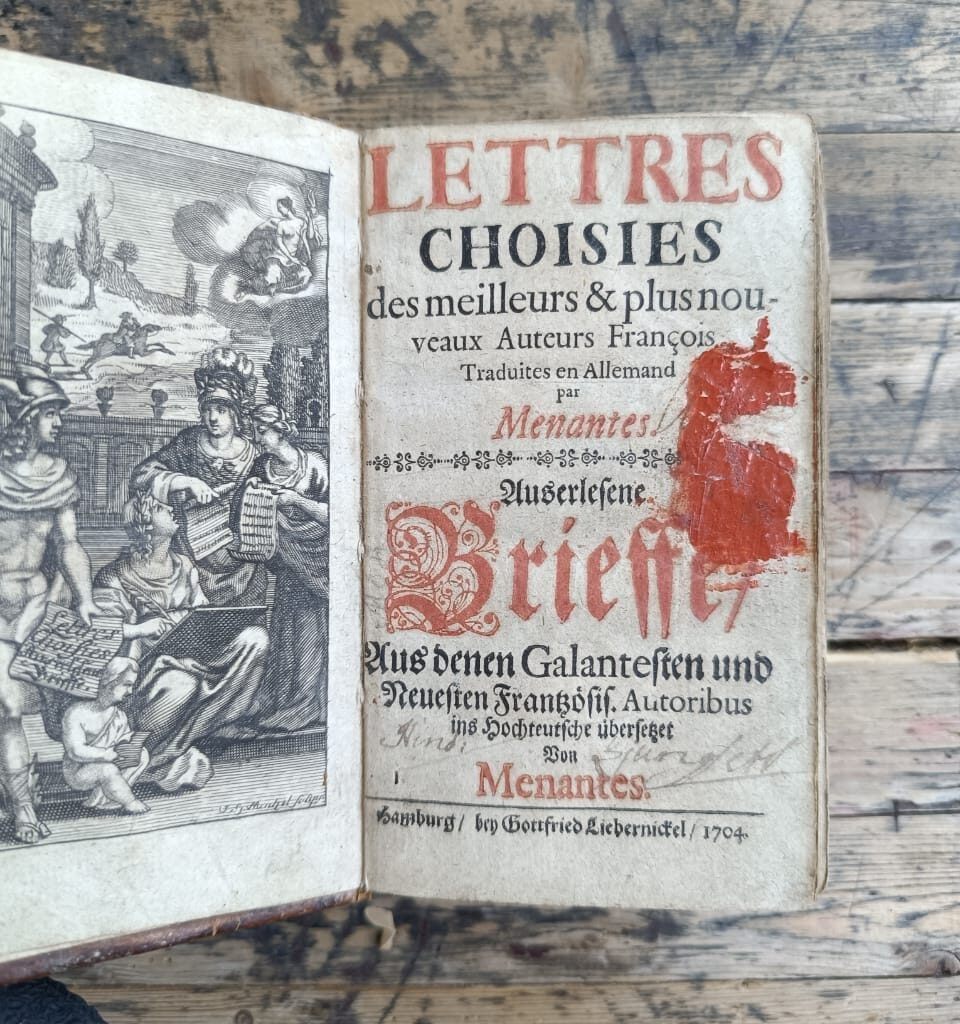 LETTRES
CHOISIES
des meilleurs & plus nou-
veaux Auteurs François
Traduites en Allemand
par
Menantes.
Auserlesene
Brieffe/
Aus denen Galantesten und
Neuesten Frantzösis. Autoribus
ins Hochteutsche übersetzet
Von
Menantes.
Hamburg/ bey Gottfried Liebernickel/ 1704.